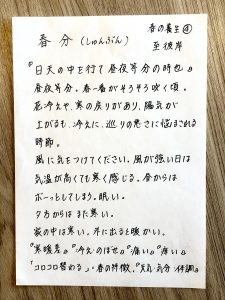 春の養生④
春分（しゅんぶん） 至彼岸
『日天の中を行て昼夜等分の時也』
昼夜等分。春一番がそろそろ吹く頃。
花冷えや、寒の戻りがあり、陽気が
上がるも、冷えに、巡りの悪さに悩まされる
時節。
風に気をつけてください。風が強い日は
気温が高くても寒く感じる。昼からは
ボーっとしてしまう。眠い。
夕方からはまた寒い。
家の中は寒い。外に出ると暖かい。
『寒暖差』『冷えのぼせ』『痛い』『痒い』
『コロコロ替わる』・春の特徴。『天気・気分・体調』